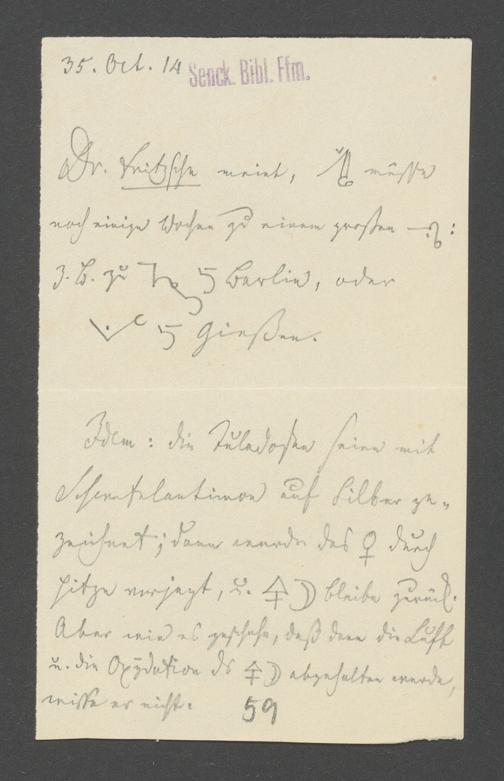 35. Oct. 14 Senck. Bibl. Ffm.
Dr. Fritzsche meint, müsse
noch einige Wochen zu einem großen :
z. B. zu Berlin, oder
Gießen.
Idem : die Tuladosen seien mit
Schwefelantimon auf Silber ge-
zeichnet; dann werde das ♀ durch
Hitze verjagt, u. bleibe zurück.
Aber wie es geschehe, daß dann die Luft
u. die Oxydation ds abgehalten werde,
wisse er nicht.
59